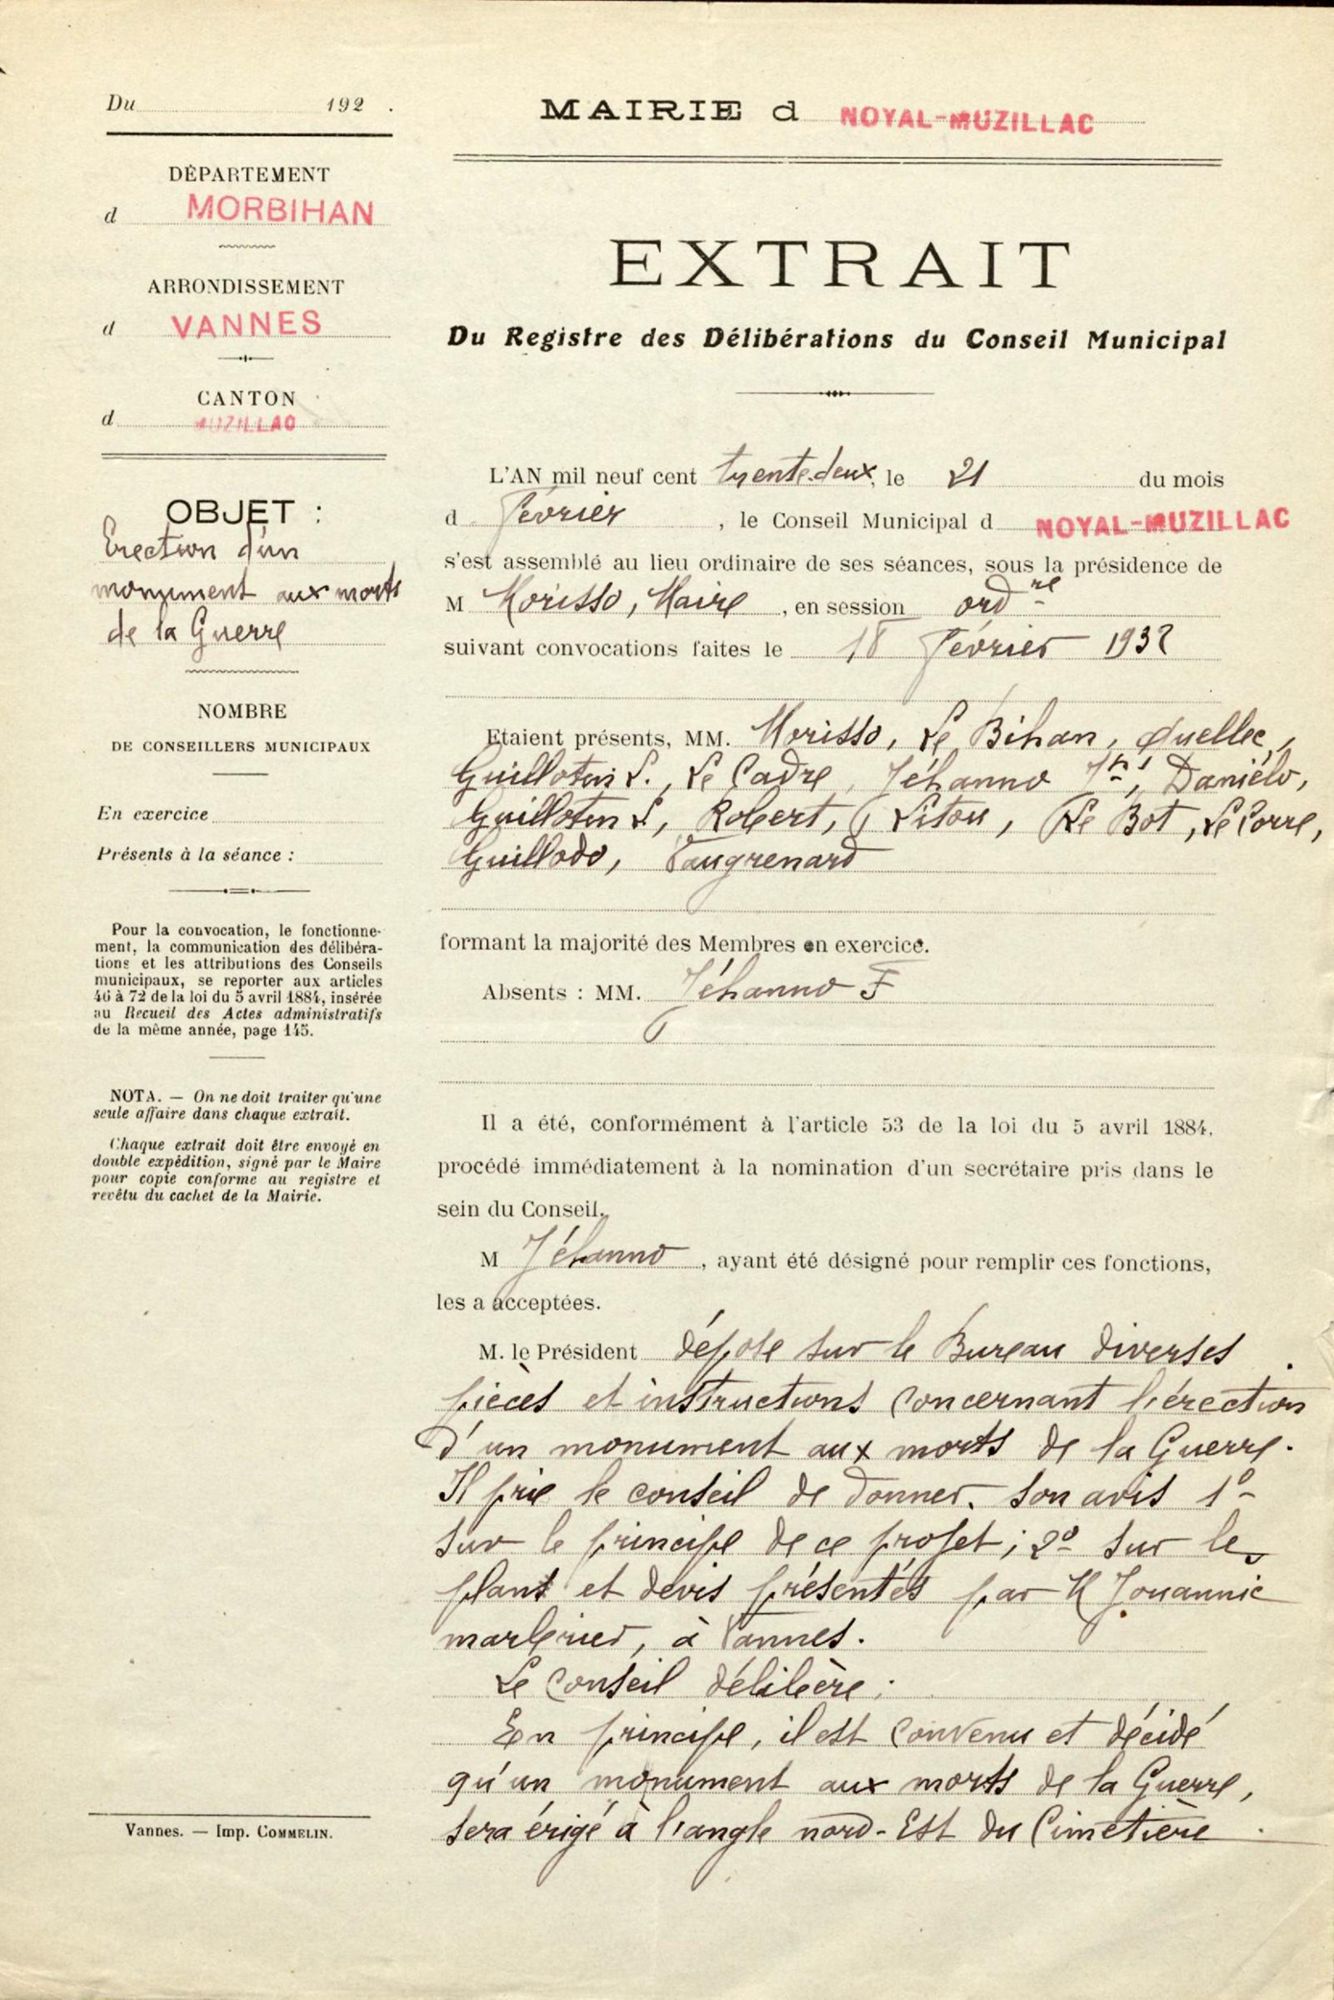 Du 192 .
DÉPARTEMENT
d MORBIHAN
ARRONDISSEMENT
d VANNES
CANTON
d MUZILLAC
OBJET :
Erection d'un
monument aux morts
de la Guerre
NOMBRE
DE CONSEILLERS MUNICIPAUX
En exercice
Présents à la séance :
Pour la convocation, le fonctionne-
ment, la communication des délibéra-
tions et les attributions des Conseils
municipaux, se reporter aux articles
46 à 72 de la loi du 5 avril 1884, insérée
au Recueil des Actes administratifs
de la même année, page 145.
NOTA. — On ne doit traiter qu'une
seule affaire dans chaque extrait.
Chaque extrait doit être envoyé en
double expédition, signé par le Maire
pour copie conforme au registre et
revêtu du cachet de la Mairie.
Vannes. — Imp. COMMELIN.
MAIRIE d NOYAL-MUZILLAC
EXTRAIT
Du Registre des Délibérations du Conseil Municipal
L'AN mil neuf cent trente-deux, le 21 du mois
d Février , le Conseil Municipal d NOYAL-MUZILLAC
s'est assemblé au lieu ordinaire de ses séances, sous la présidence de
M Morisso, Maire , en session ordre
suivant convocations faites le 18 Février 1932
Etaient présents, MM. Morisso, Le Bihan, Quellec,
Guillotin L., Le Cadre, Jéhanno Jh, Daniélo,
Guillotin L, Robert, Litou, Le Bot, Le Corre,
Guillodo, Vaugrenard
formant la majorité des Membres en exercice.
Absents : MM. Jéhanno F
Il a été, conformément à l'article 53 de la loi du 5 avril 1884,
procédé immédiatement à la nomination d'un secrétaire pris dans le
sein du Conseil.
M Jéhanno , ayant été désigné pour remplir ces fonctions,
les a acceptées.
M. le Président dépose sur le Bureau diverses
pièces et instructions concernant l'érection
d'un monument aux morts de la Guerre.
Il prie le conseil de donner son avis 1º
sur le principe de ce projet ; 2º sur les
plans et devis présentés par M Jouannic
marbrier, à Vannes.
Le Conseil délibère :
En principe, il est convenu et décidé
qu'un monument aux morts de la Guerre,
sera érigé à l'angle nord-Est du Cimetière